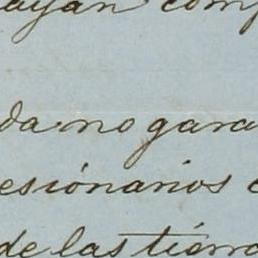 ayan comp
da no gara
esionarios c
de las tierra